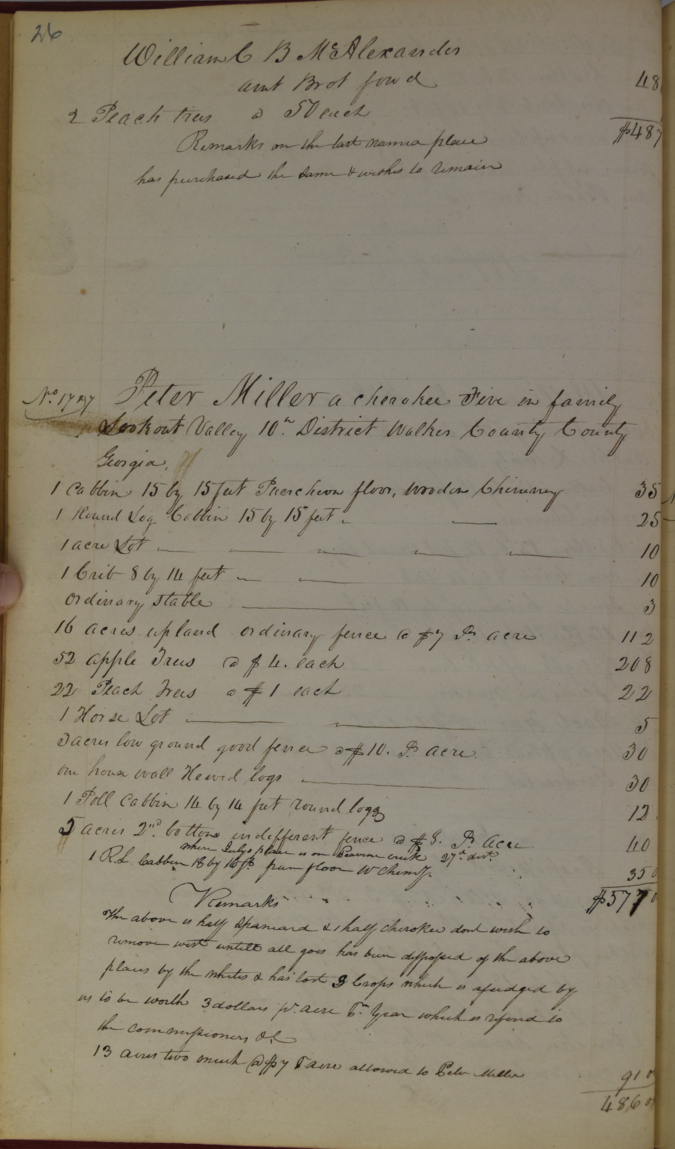 26
William C B McAlexander
amt Brot forwd 48
2 Peach trees @ 50 each
$487
Remarks on the last named place
has purchased the same & wishes to remain
No. 17
Peter Miller a cherokee Five in family
Lookout Valley 10th District Walker County County
Georgia,
1 Cabbin 15 by 15 feet Puercheon floor, wooden Chimney 35
1 Round Log Cabbin 15 by 15 feet 25
1 acre Lot 10
1 Crib 8 by 14 feet 10
Ordinary stable 3
16 acres upland ordinary fence @ $7 Pr acre 112
52 apple Trees @ $4. each 208
22 Peach Trees @ $1 each 22
1 Horse Lot 5
3 acres low ground good fence @ $10. Pr acre 30
one house wall Hewed logs 30
1 Poll Cabbin 14 by 14 feet round logs 12
5 acres 2nd bottom indifferent fence @ $8. Pr acre 40
where place is on creek 27th dist.
1 R.L. Cabbin 18 by 16 ft. floor W Chimy. 35
$577
Remarks
The above is half Spaniard & half cherokee dont wish to
remove west untill all goes has been disposed of the above
places by the whites & has lost 3 Crops which is adjudged by
us to be worth 3 dollars pr. acre Pr Year which is referd to
the commissioners &c
13 acres two much @ $7 P acre allowed to Peter Miller 91
486